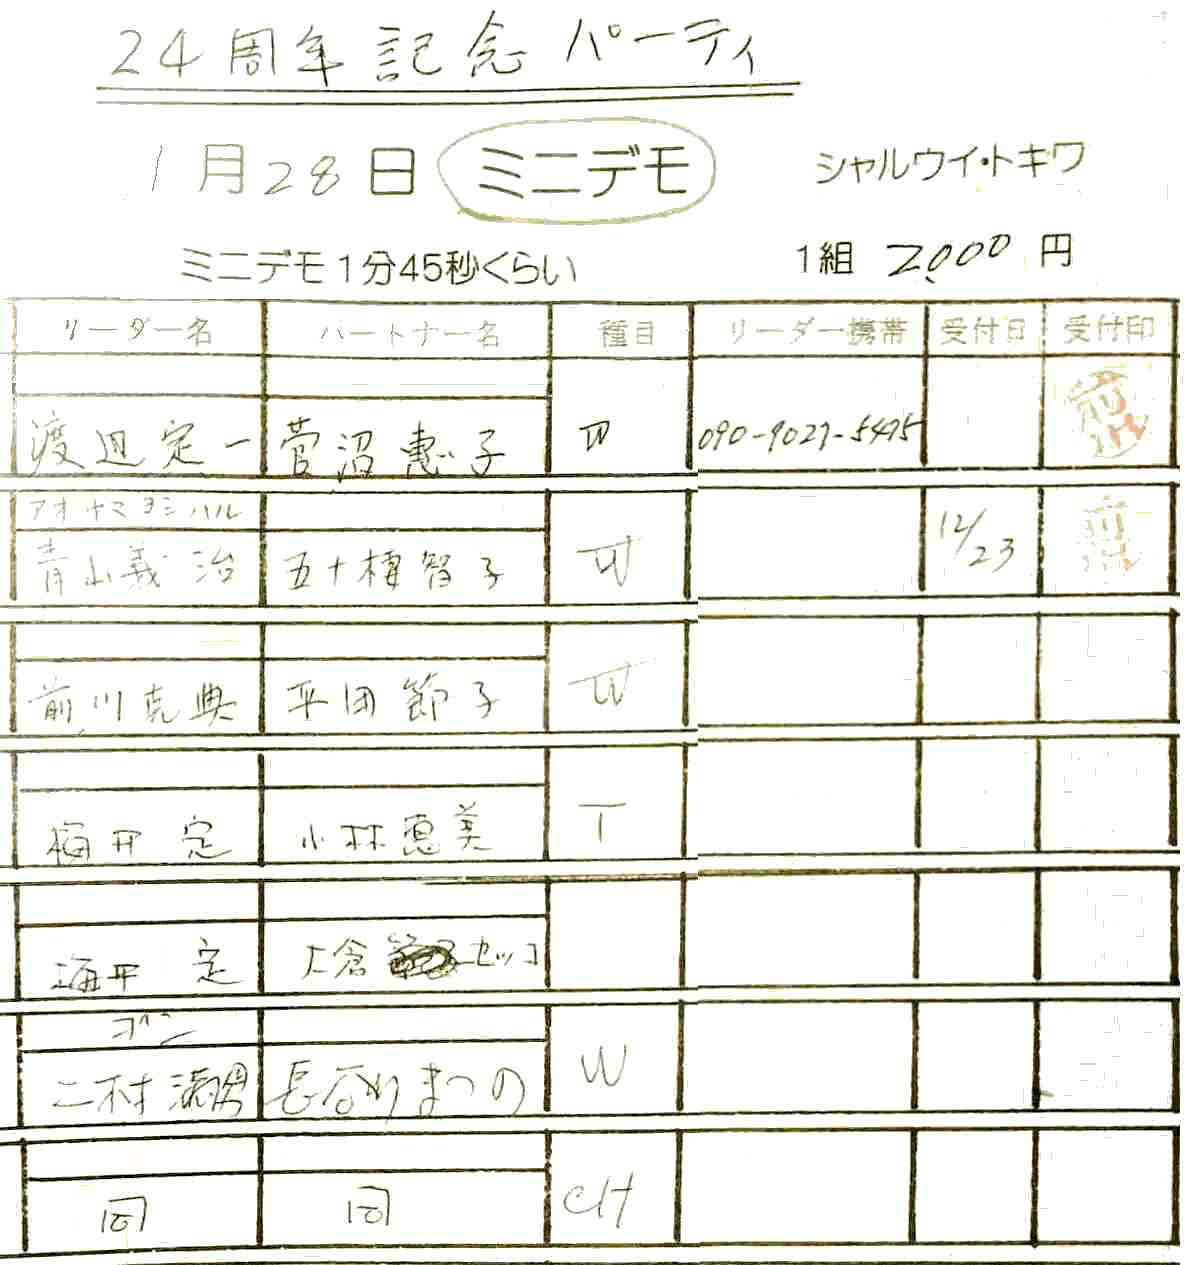 24周年記念パーティ
1月28日 ミニデモ シャルウイ・トキワ
ミニデモ1分45秒くらい 1組 2,000円
リーダー名 パートナー名 種目 リーダー携帯 受付日 受付印
渡辺定一 菅沼恵子 W 090-9027-5475
アオヤマヨシハル
青山義治 五十棲智子 W 12/23
前川克典 平田節子 W
梅田 定 小林恵美 T
定 大倉 セツコ
二村 長谷川まつの W
同 同 CH